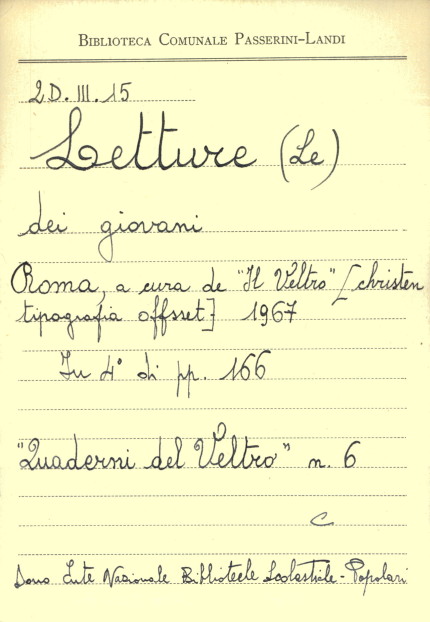 BIBLIOTECA COMUNALE PASSERINI-LANDI
2D. III. 15
Letture (Le)
dei giovani
Roma, a cura de "Il Veltro" [christen
tipografia offsset] 1967
In 4° di pp. 166
"Quaderni del Veltro" n. 6
C
Dono Ente Nazionale Biblioteche Scolastiche - Popolari